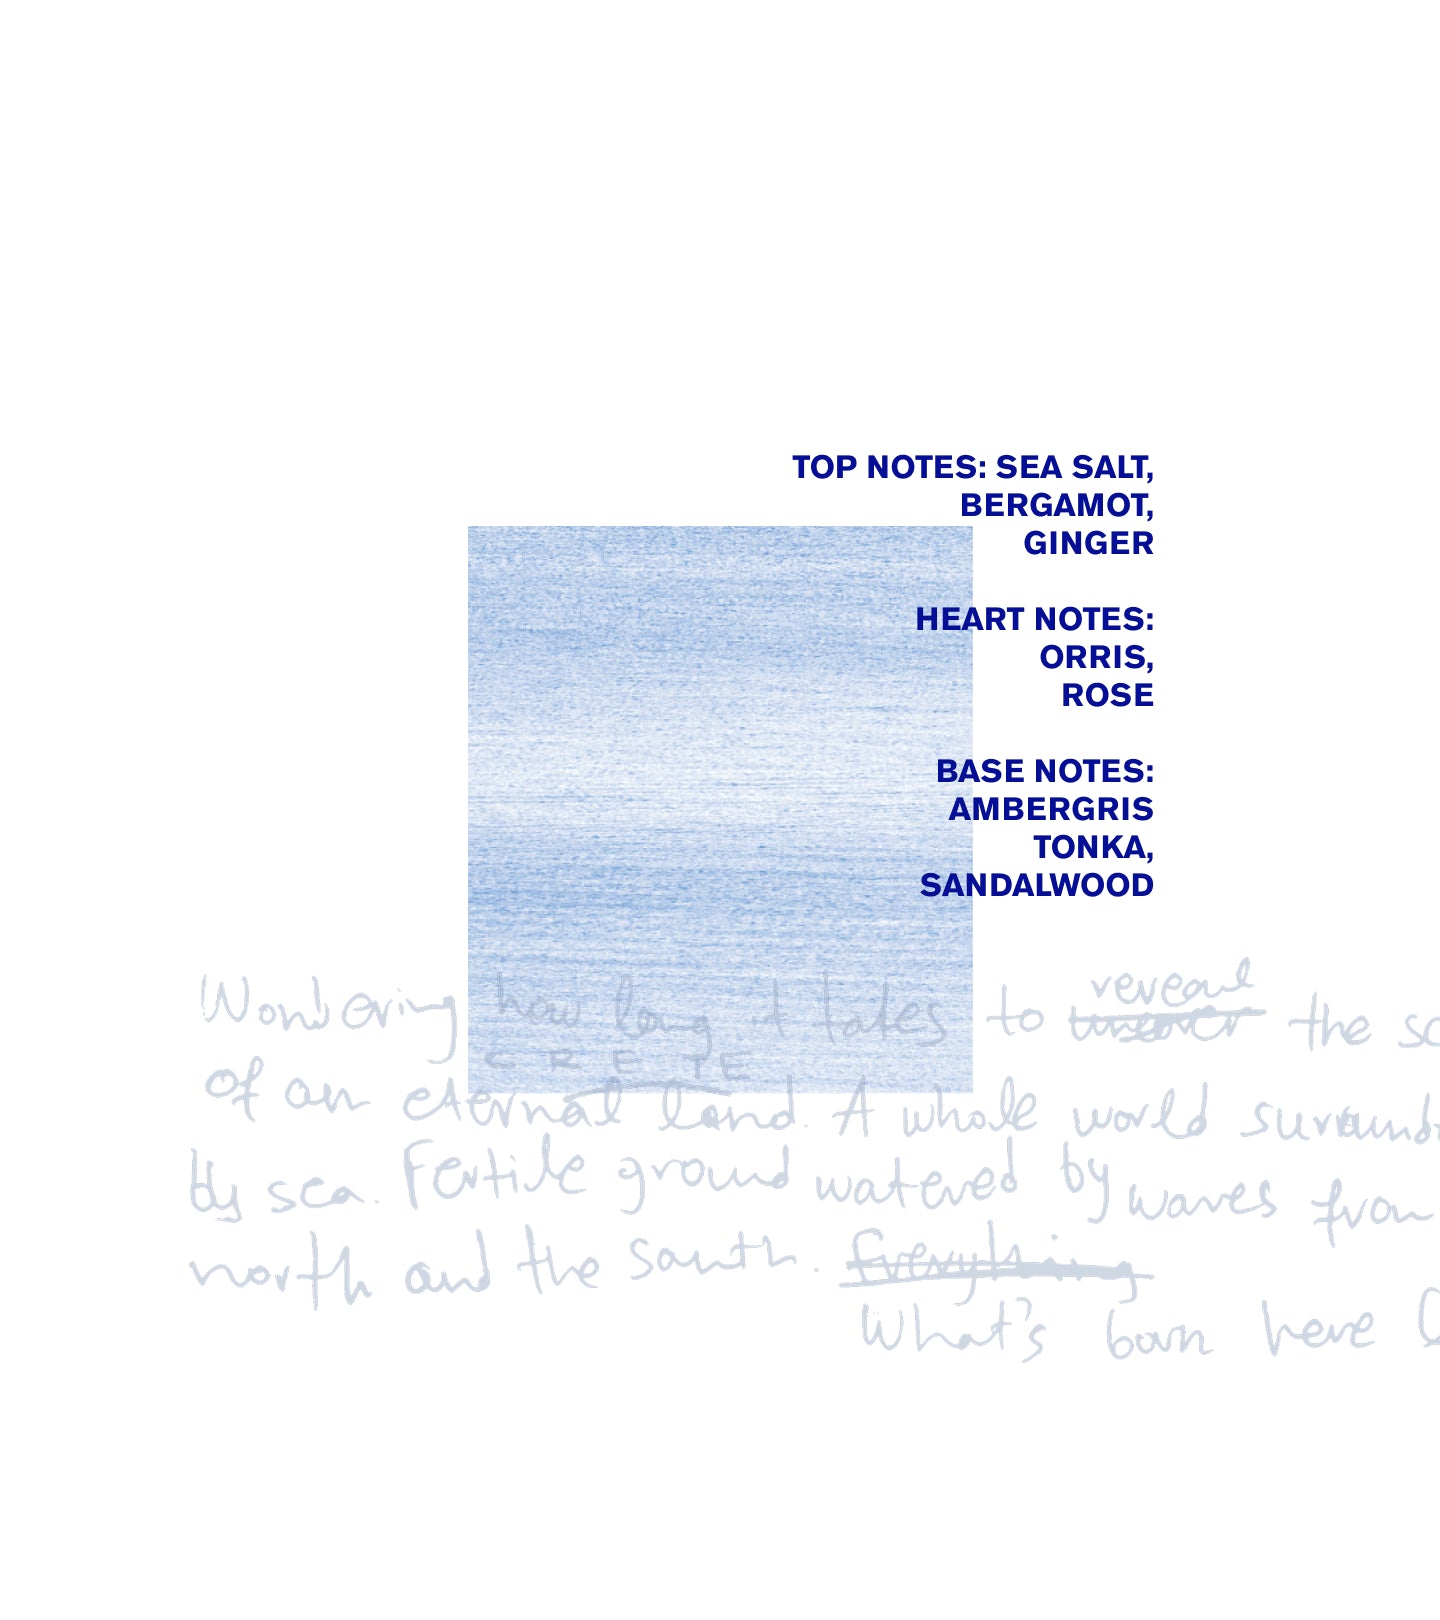 TOP NOTES: SEA SALT,
BERGAMOT,
GINGER
HEART NOTES:
ORRIS,
ROSE
BASE NOTES:
AMBERGRIS
TONKA,
SANDALWOOD
reveal
Wondering how long it takes to uncover the sc
CRETE
of an eternal land. A whole world surround
by sea. Fertile ground watered by waves from
north and the south. Everything
What's born here